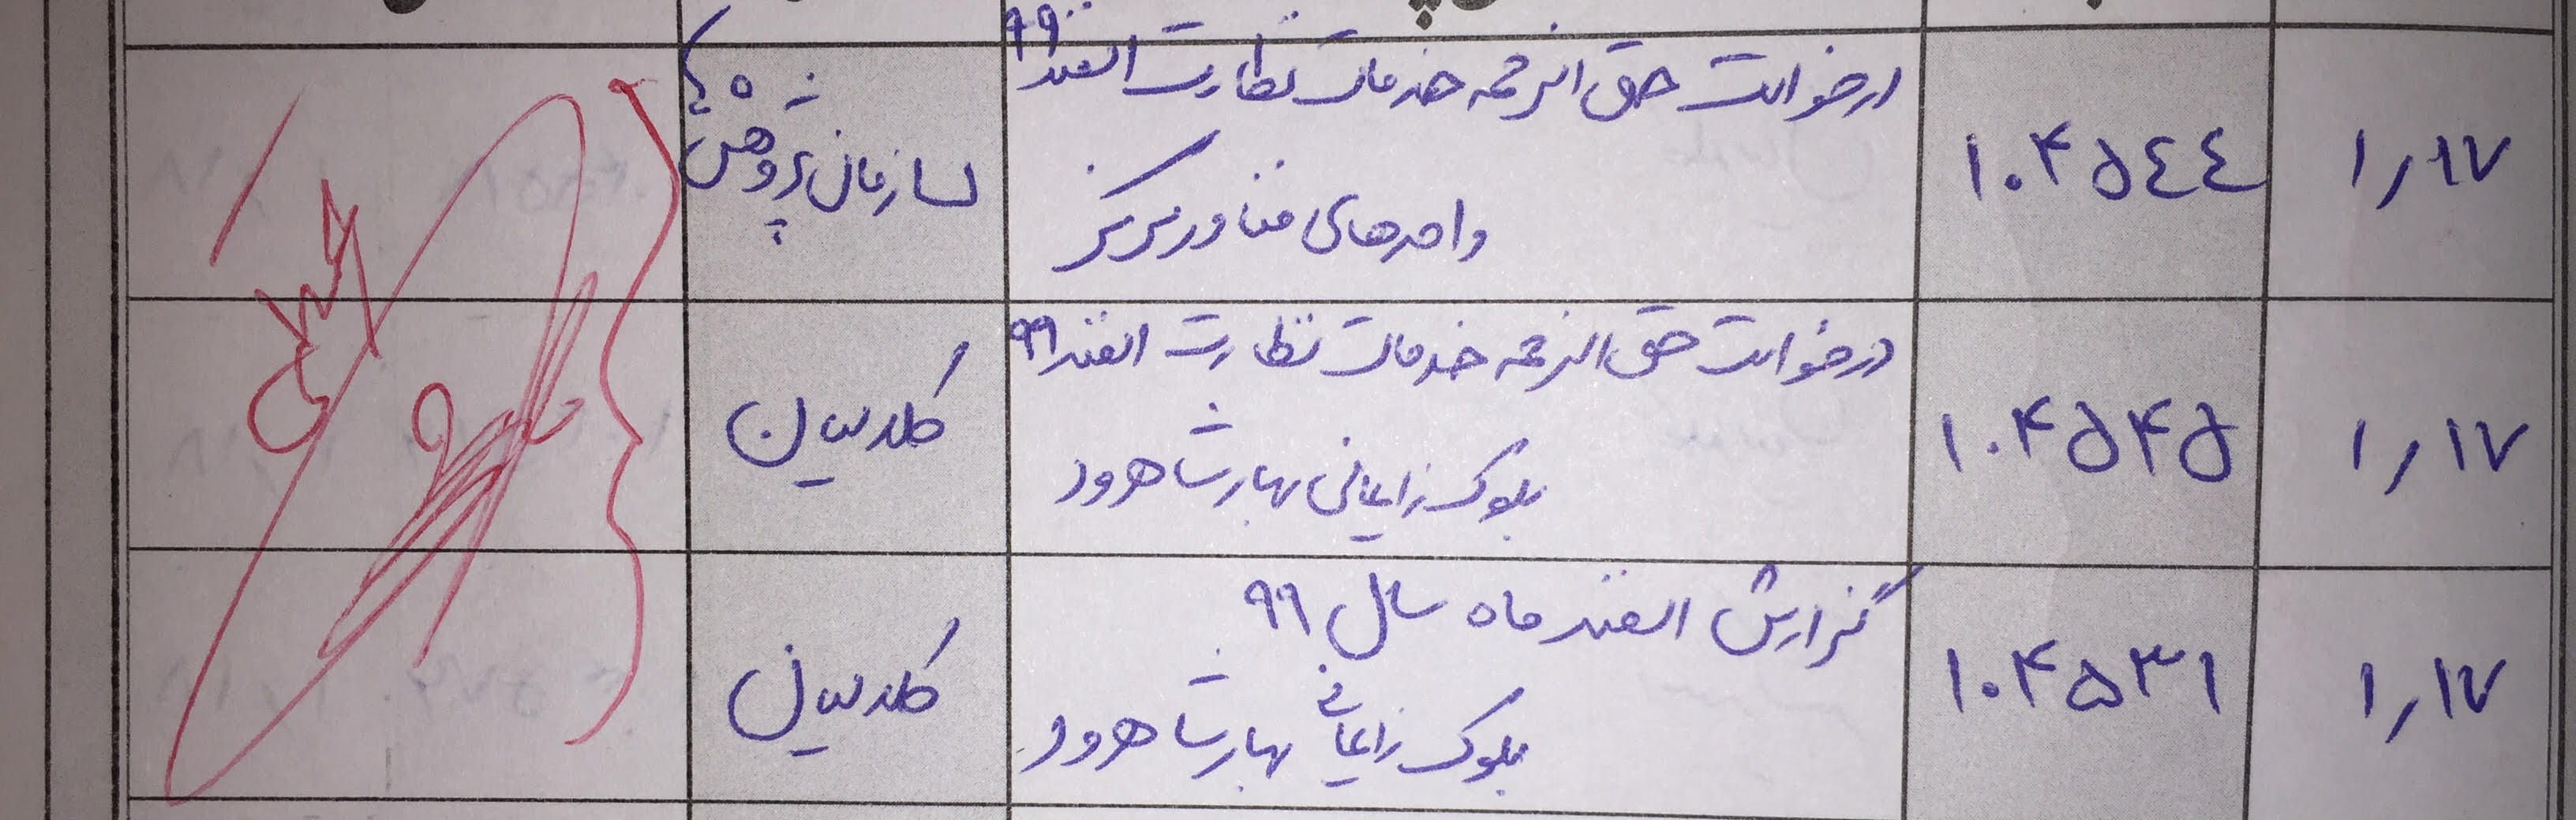 ۱٫۱۷
۱۰۴۵۴۴
درخواست حق الزحمه خدمات نظارت اسفند ۹۹
واحدهای فناور تبریز
سازمان پژوهش ها
۱٫۱۷
۱۰۴۵۴۵
درخواست حق الزحمه خدمات نظارت اسفند ۹۹
بلوک زایمانی بهار شاهرود
کلدیان
۱٫۱۷
۱۰۴۵۳۱
گزارش اسفند ماه سال ۹۹
بلوک زایمانی بهار شاهرود
کلدیان